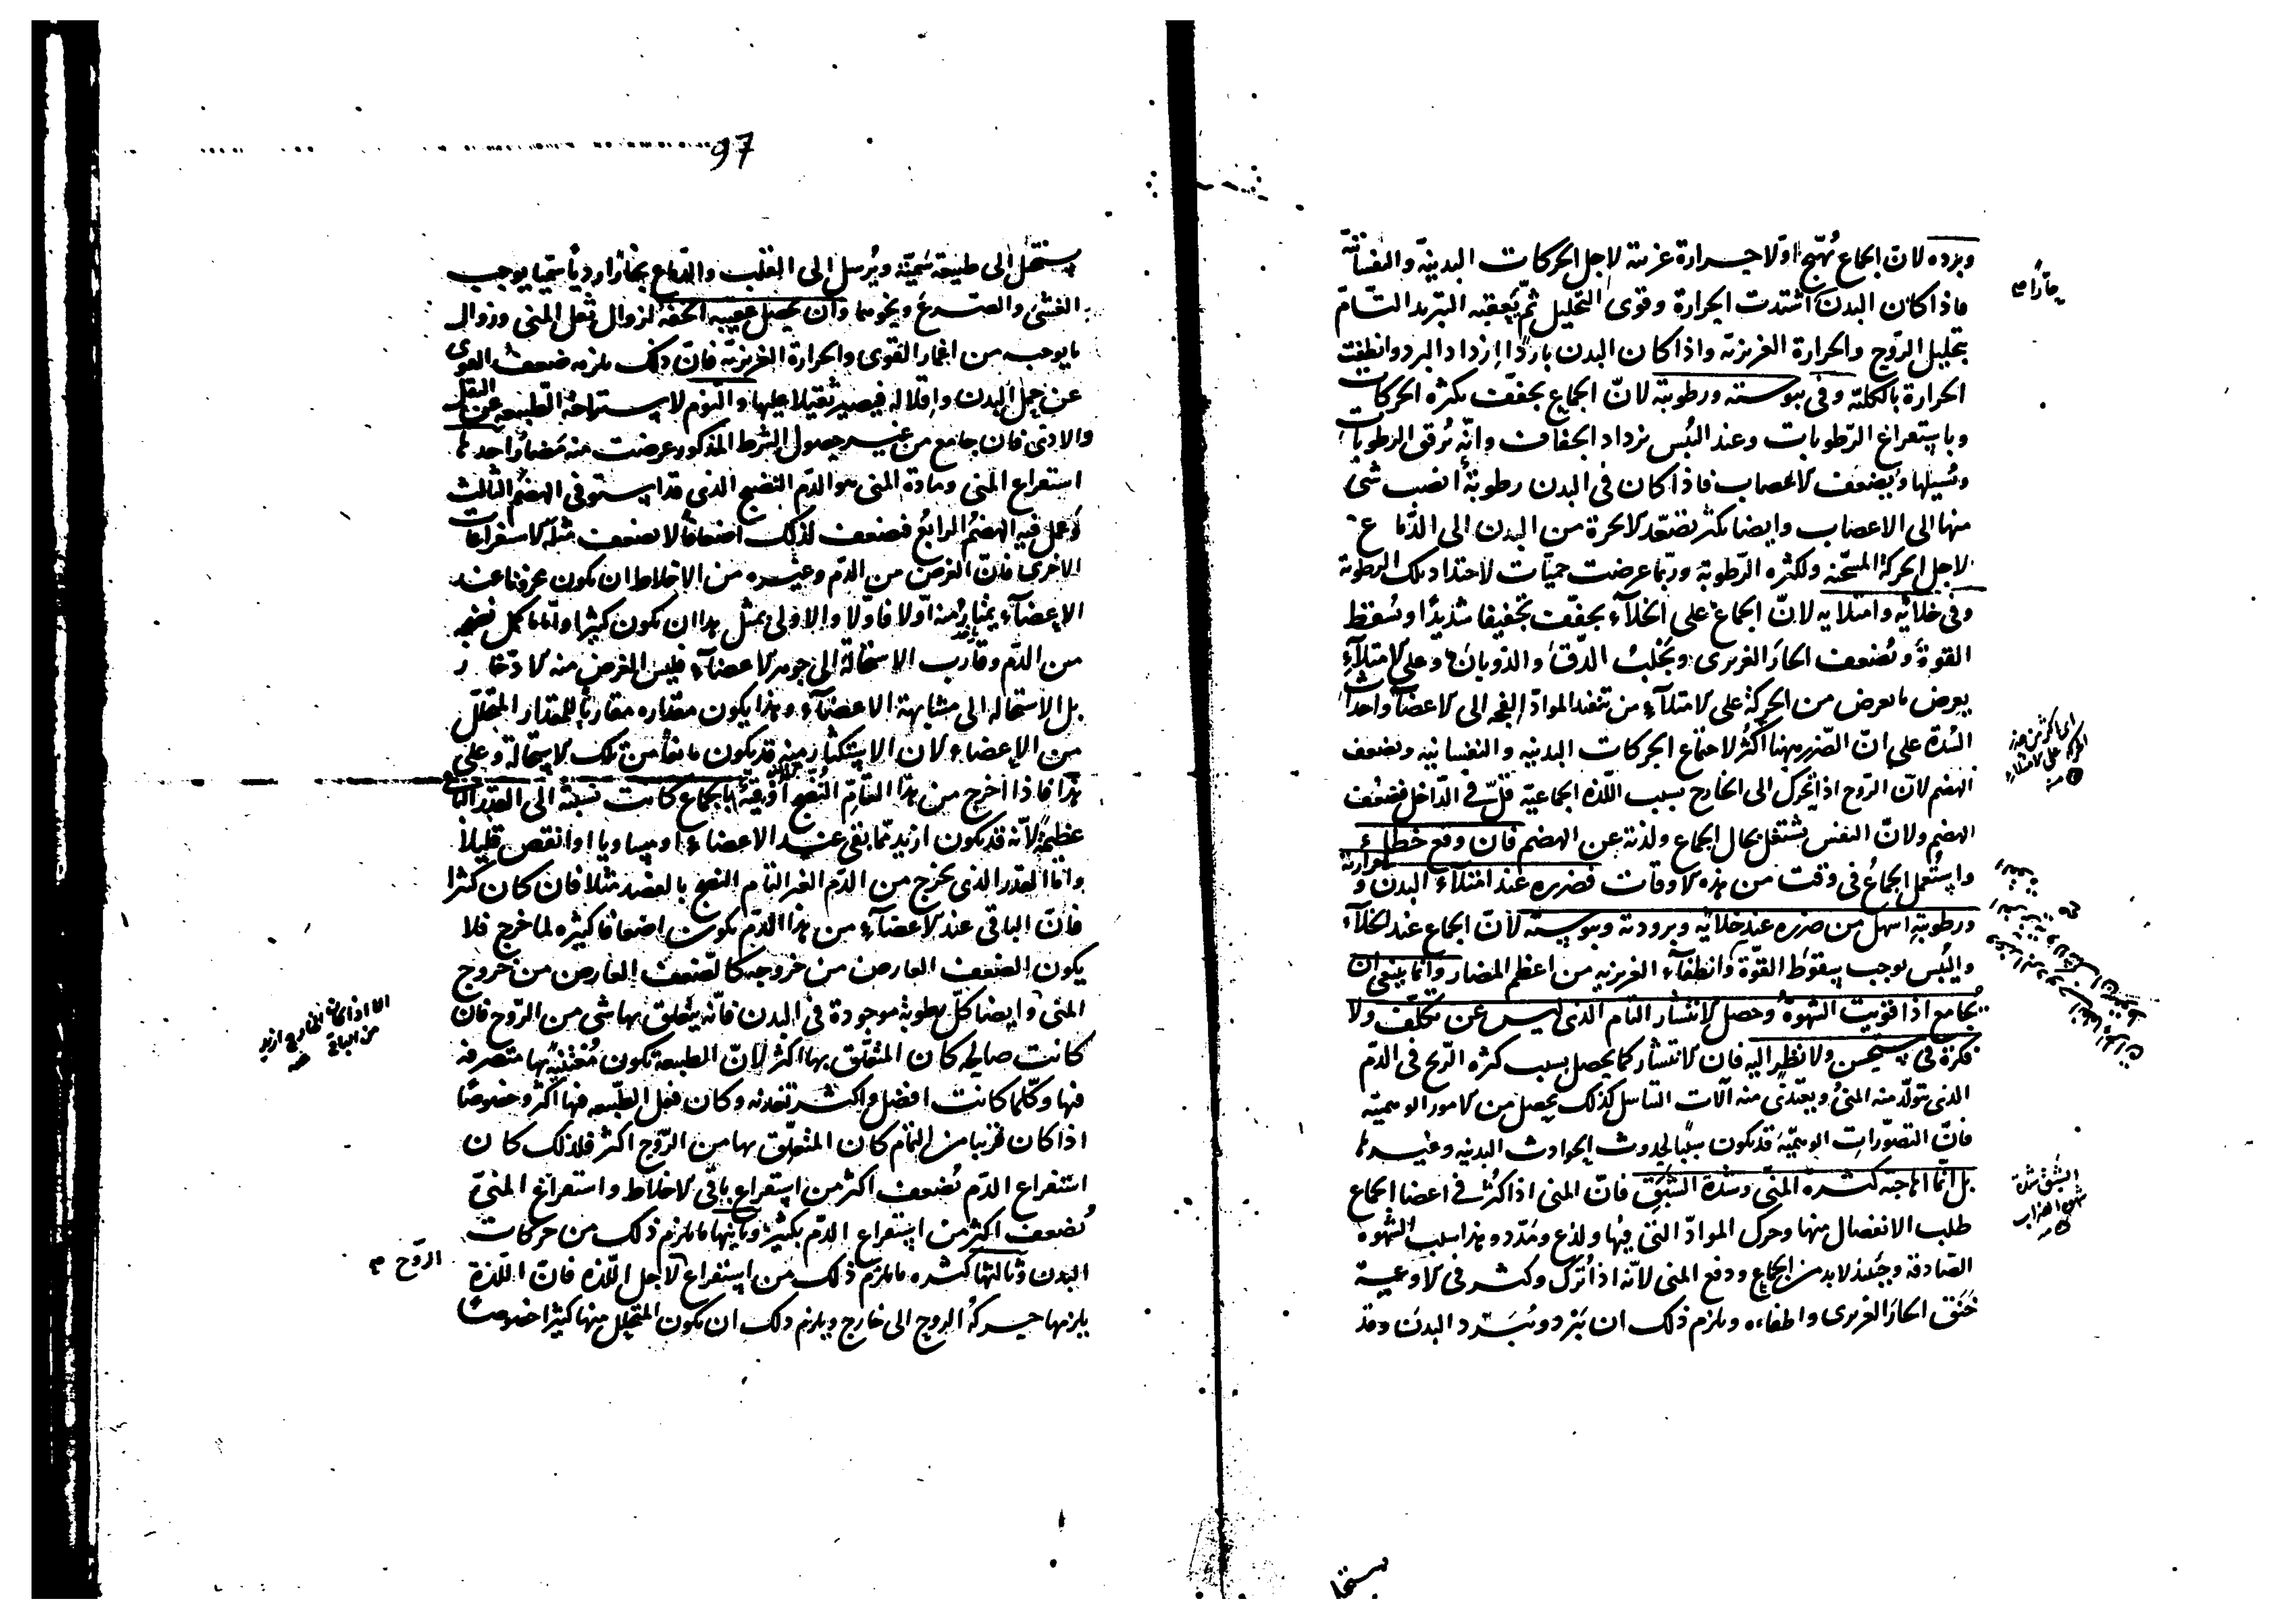 وبرده لانّ الجماع يُهيّج اوّلا حرارة غريبة لاجل الحركات البدنيّة والنفسانيّة
فاذا كان البدن اشتدت الحرارة وقوى التحليل ثمّ يَعقبه التبريد التامّ
حارّا صح
بتحليل الروح والحرارة الغريزية واذا كان البدن باردًا ازداد البرد وانطفت
الحرارة بالكليّة وفى يبوسته ورطوبته لانّ الجماع يجفف بكثرة الحركات
وباستفراغ الرّطوبات وعند اليُبس يزداد الجفاف وانّه يُرقق الرطوبات
ويُسيلها ويضعف الاعصاب فاذا كان فى البدن رطوبة انصب شئ
منها الى الاعصاب وايضا يكثر تصعّد الابخرة من البدن الى الدماغ
لاجل الحركة المسخّنة ولكثرة الرّطوبة وربّما عرضت حميّات لاحتداد تلك الرطوبة
وفى خلائه وامتلائه لانّ الجماع على الخلاء يجفّف تجفيفا شديدًا ويُسقط
القوة ويُضعف الحارّ الغريزى ويجلب الدقّ والذوبان وعلى الامتلاء
يعرض ما يعرض من الحركة على الامتلاء من تنفيذ الموادّ الفجة الى الاعضاء واحداث
السُدة على انّ الضّرر ههنا اكثر لاجتماع الحركات البدنيه والنفسانيه ويضعف
الهضم لانّ الرّوح اذا تحرك الى الخارج بسبب اللّذة الجماعيّة قلّ فى الدّاخل فضعف
الهضم ولانّ النفس تشتغل بحال الجماع ولذته عن الهضم فان وقع خطاء
واستُعمل الجماعُ فى وقت من هذه الاوقات فضرره عند امتلاء البدن وحرارته
ورطوبته اسهل من ضرره عند خلائه وبرودته ويبوسته لانّ الجماع عند الخلاء
واليُبس يوجب سقوط القوّة وانطفاء الغريزيه من اعظم المضار وانّما ينبغى ان
يُجامع اذا قويت الشهوة وحصل الانتشار التام الذى ليس عن تكلّف ولا
فكرة فى مستحسن ولا نظر اليه فان الانتشار كما يحصل بسبب كثرة الرّيح فى الدّم
الذى يتولّد منه المنىّ ويغتذى منه آلات التناسل كذلك يحصل من الامور الوهميّه
فانّ التصوّرات الوهميّة قد يكون سببًا لحدوث الحوادث البدنيه وغيرها
بل انّما اهاجته كثرة المنىّ وشدّة الشبق فانّ المنى اذا كثر فى اعضا الجماع
الشبق شدة
طلب الانفصال منها وحرك الموادّ التى فيها ولذع ومدّد وهذا سبب الشهوة
الصّادقة وحينئذ لا بد من الجماع ودفع المنى لانّه اذا تُرك وكثر فى الاوعية
خنق الحار الغريزى واطفاه ويلزم ذلك ان يبرد ويُبرّد البدن وقد
97
يستحيل الى طبيعة سميّة ويُرسل الى القلب والدماغ بخارًا رديا سمّيا يوجب
الغشى والصرع ونحوهما وان يحصل عقيبه الخفة لزوال ثقل المنى وزوال
ما يوجبه من اغمار القوى والحرارة الغريزيّة فانّ ذلك يلزمه ضعف القوى
عن حمل البدن واقلاله فيصير ثقيلا عليها والنوم لاستراحة الطبيعه عن الثقل
والاذى فان جامع من غير حصول الشرط المذكور عرضت منه مضار احدها
استفراغ المنى ومادة المنى هو الدّم النضيج الذى قد استوفى الهضم الثالث
وعمل فيه الهضمُ الرابع فيضعف لذلك اضعافا لا يضعف مثله الاستفراغات
الاخرى فانّ الغرض من الدّم وغيره من الاخلاط ان يكون مخزونا عند
الاعضاء يمتاز منه اوّلا فاوّلا والاولى بمثل هذا ان يكون كثيرا وامّا ما كمل نضجه
من الدّم وقارب الاستحالة الى جوهر الاعضاء فليس الغرض منه الادّخار
بل الاستحالة الى مشابهة الاعضاء وهذا يكون مقداره مقاربًا للمقدار المتحلّل
من الاعضاء لان الاستكثار منه قد يكون مانعا من تلك الاستحالة وعلى
هذا فاذا اخرج من هذا التامّ النضج اوقية بالجماع كانت نسبته الى القدر الباقى
عظيمة لانّه قد يكون ازيد ممّا بقى عند الاعضاء او مساويا او انقص قليلا
وامّا القدر الذى يخرج من الدّم الغير التام النضج بالفصد مثلا فان كان كثيرا
فانّ الباقى عند الاعضاء من هذا الدّم يكون اضعافا كثيرة لما خرج فلا
يكون الضعف العارض من خروجه كالضّعف العارض من خروج
المنى وايضا كلّ رطوبة موجودة فى البدن فانّه يتعلّق بها شى من الرّوح فان
الا اذا كان الخارج ازيد
من الباقى
كانت صالحه كان المتعلّق بها اكثر لانّ الطبيعة تكون مُعتنية بها متصرفة
فيها وكلّما كانت افضل واكثر تغذية وكان فعل الطّبيعه فيها اكثر وخصوصًا
اذا كان قريبا من التمام كان المتعلّق بها من الرّوح اكثر فلذلك كان
استفراغ الدّم يُضعف اكثر من استفراغ باقى الاخلاط واستفراغ المنىّ
يُضعف اكثر من استفراغ الدّم بكثير وثانيها ما يلزم ذلك من حركات
البدن وثالثها كثرة ما يلزم ذلك من استفراغ لاجل اللّذة فانّ اللّذة
الروح صح
يلزمها حركةُ الروح الى خارج ويلزم ذلك ان يكون المتحلل منها كثيرا خصوصًا